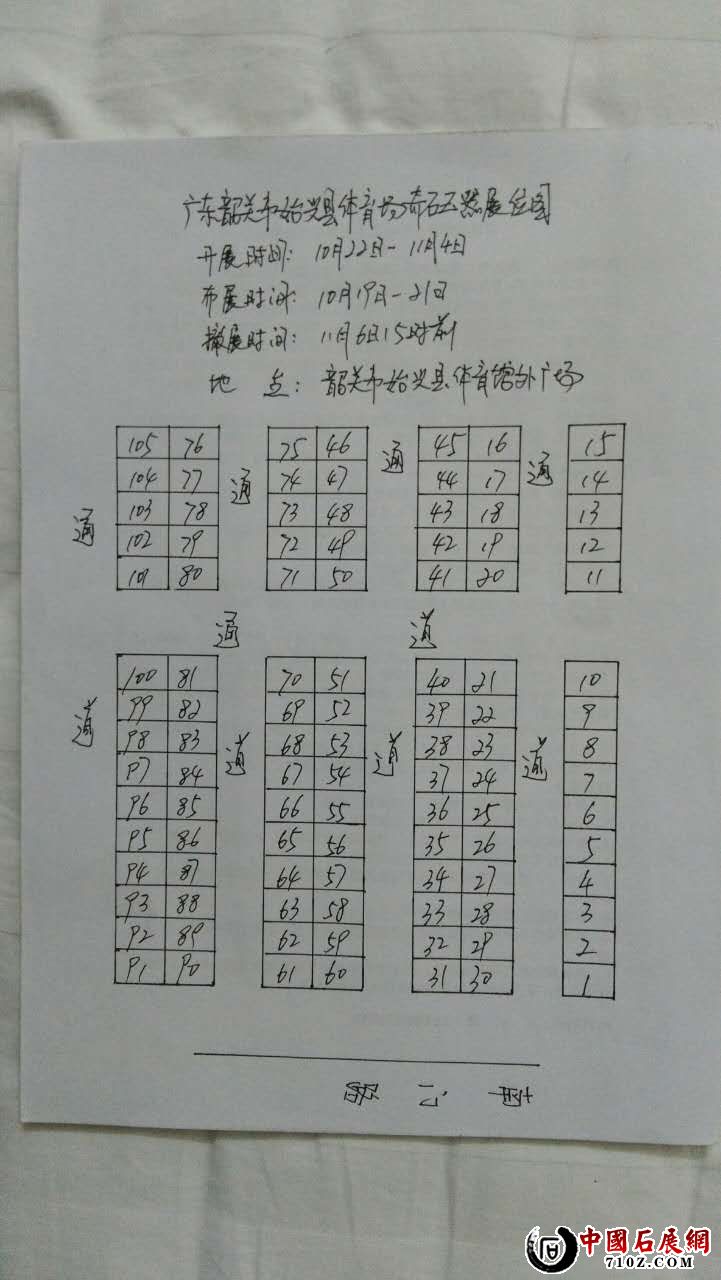 广东韶关市始兴县体育场奇石玉器展位图
开展时间：10月22日-11月4日
布展时间：10月19日-21日
撤展时间：11月6日15时前
地 点：韶关市始兴县体育馆外广场
105 76 75 46 45 16 15
通 通
104 77 通 74 47 44 17 通 14
103 78 73 48 43 18 13
通
102 79 72 49 42 19 12
101 80 71 50 41 20 11
通 道
100 81 70 51 40 21 10
99 82 69 52 39 22 9
道
98 83 道 68 53 道 38 23 道 8
97 84 67 54 37 24 7
96 85 66 55 36 25 6
95 86 65 56 35 26 5
94 87 64 57 34 27 4
93 88 63 58 33 28 3
92 89 62 59 32 29 2
91 90 61 60 31 30 1
公 路
中國石展網
710Z.COM